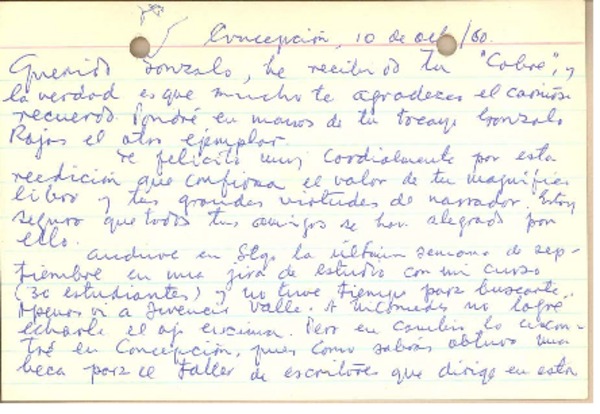 Concepción, 10 de oct/60.
Querido Gonzalo, he recibido tu "Cobre", y
la verdad es que mucho te agradezco el cariñoso
recuerdo. Pondré en manos de tu tocayo Gonzalo
Rojas el otro ejemplar.
Te felicito muy cordialmente por esta
reedición que confirma el valor de tu magnífico
libro y tus grandes virtudes de narrador. Estoy
seguro que todos tus amigos se han alegrado por
ello.
Anduve en Stgo la última semana de sep-
tiembre en una jira de estudio con mi curso
(30 estudiantes) y no tuve tiempo para buscarte.
Apenas vi a Juvencio Valle. A Nicomedes no logré
echarle el ojo encima. Pero en cambio lo encon-
tré en Concepción, pues como sabrás obtuvo una
beca para el Taller de escritores que dirige en esta